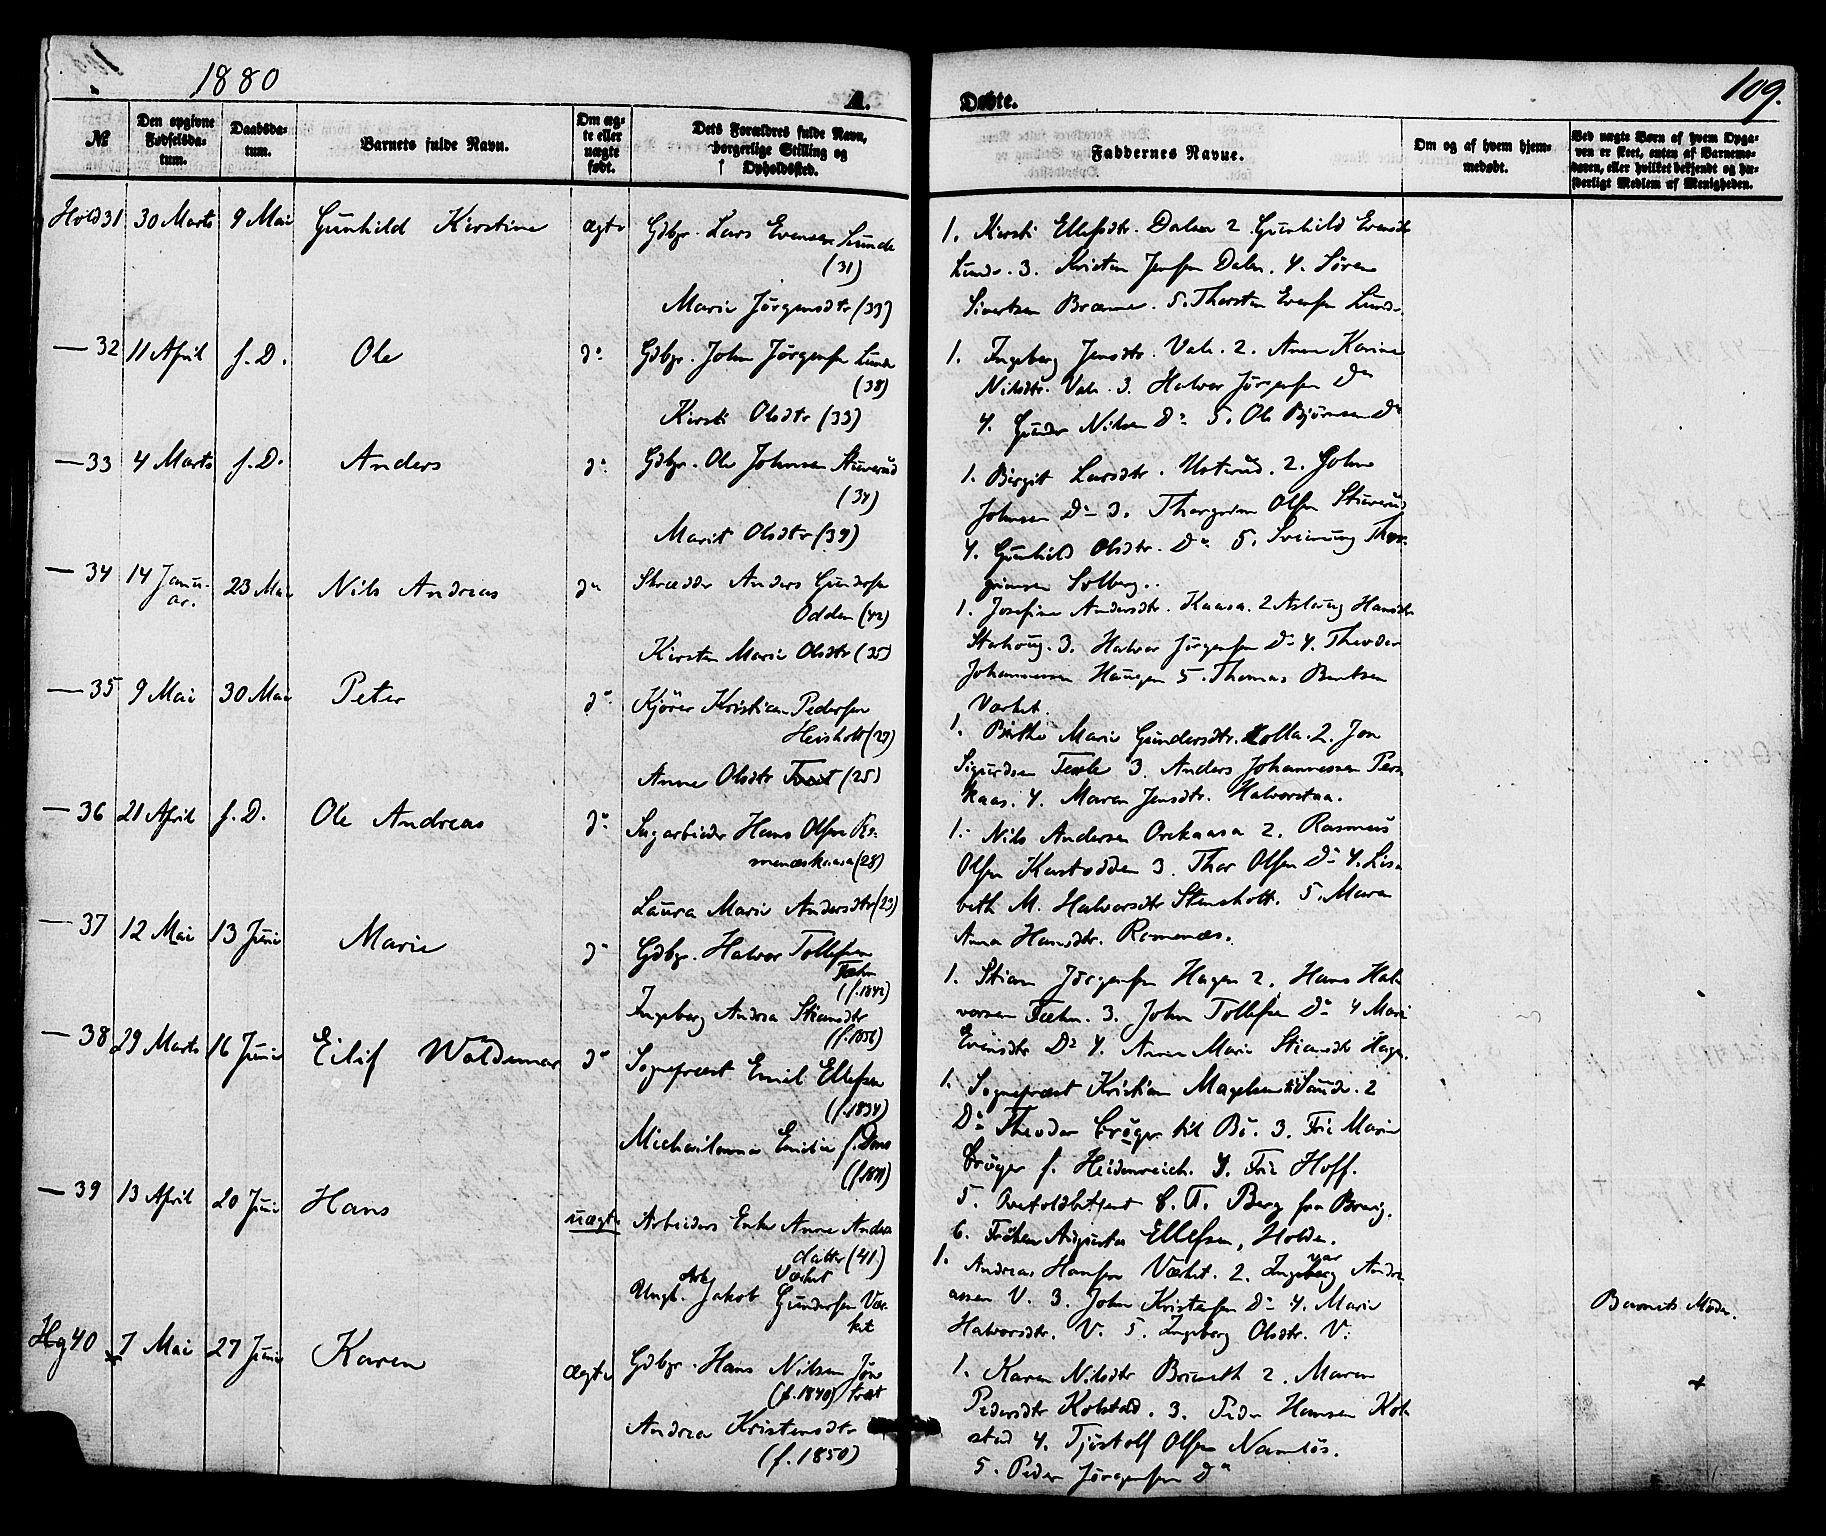 1880
A.
Døbte.
109.
№
Den opgivne Fødselsdatum.
Daabsdatum.
Barnets fulde Navn.
Om ægte eller uægte født.
Dets Forældres fulde Navn, borgerlige Stilling og Opholdssted.
Faddernes Navne.
Om og af hvem hjemmedøbt.
Ved uægte Børn af hvem Opgaven er skeet, enten af Barnemoderen, eller hvilket bekjendt og hæderligt Medlem af Menigheden.
Hold 31 30 Marts 9 Mai Gunhild Kirstine ægte Gdbgr. Lars Evensen Lunde
(31)
Marie Jørgensdtr (33)
1. Kirsti Ellefsdtr. Dalen 2. Gunhild Evensdtr
Lunde. 3. Kristen Jensen Dalen. 4. Søren
Sivertsen Brænne. 5. Thorsten Evensen Lunde.
— 32 11 April s. D. Ole do Gdbgr. John Jørgensen Lunde
(38)
Kirsti Olsdtr (33)
1. Ingeborg Jensdtr. Vale. 2. Anne Karine
Nilsdtr. Vale. 3. Halvor Jørgensen Do
4. Gunder Nilsen Do 5. Ole Bjørnsen Do
— 33 4 Marts s. D. Anders do Gdbgr. Ole Johnsen Stuverud
(34)
Marit Olsdtr (39)
1. Birgit Larsdtr. Usterud. 2. John
Johnsen Do 3. Thorgrim Olsen Stuverud
4. Gunhild Olsdtr. Do 5. Sveinung Thor-
grimsen Solberg.
— 34 14 Janu-
ar. 23 Mai Nils Andreas do Skrædder Anders Gundersen
Odden (42)
Kirsten Marie Olsdtr (35)
1. Josefine Andersdtr. Kaasa. 2 Aslaug Hansdtr
3. Halvor Jørgensen Do 4. Theodor
Johannessen Haugen 5. Thomas Bentsen
Værket.
— 35 9 Mai 30 Mai Peter do Kjører Kristian Pedersen
Heisholt (29)
Anne Olsdtr (25)
1. Birthe Marie Gundersdtr. Kolla. 2. Jon
Sigurdsen 3. Anders Johannessen
4. Maren Jensdtr. Halvorstaa.
— 36 21 April s. D. Ole Andreas do Sagarbeider Hans Olsen Ro-
menæskaasa (28)
Laura Marie Andersdtr (23)
1. Nils Andersen Orekaasa 2. Rasmus
Olsen Kastodden 3. Thor Olsen Do 4. Lisa
beth M. Halvorsdtr Stensholt. 5. Maren
Anna Hansdtr. Romenæs.
— 37 12 Mai 13 Juni Marie do Gdbgr. Halvor Tollefsen
Fæhn
(f. 1842)
Ingeborg Andrea Stiansdtr
(f. 1856)
1. Stian Jørgensen Hagen 2. Hans Hal-
vorsen Fæhn. 3. John Tollefsen Do 4 Mari
Evensdtr Do 4. Anne Marie Stiansdtr Hagen.
— 38 29 Marts 16 Juni Eilif Waldemar do Sognepræst Emil Ellefsen
(f. 1834)
Michaelowna Emilie f. Dons
1. Sognepræst Kristian Magelssen til Saude. 2
Do Theodor Crøger til Bø. 3. Frue Marie
Crøger f. Heidenreich. 4. Frue Hoff.
5. C. A. Berg fra Brevig.
6. Frøken Augusta Ellefsen, Holden.
— 39 13 April 20 Juni Hans uægte Arbeiders Enke Anne Andrea
datter (41)
Værket
Ungk. Arb. Jakob Gundersen Vær-
ket
1. Andreas Hansen Værket. 2. Ingeborg Andre-
assen V. 3. John Kristensen Do 4. Marie
Halvorsdtr. V. 5. Ingeborg Olsdtr. V:
Barnets Moder.
Hg 40 7 Mai 27 Juni Karen ægte Gdbgr. Hans Nilsen Jøn-
træt
(f. 1840)
Andrea Kristensdtr
(f. 1850)
1. Karen Nilsdtr 2. Maren
Pedersdtr Kolstad. 3. Peder Hansen Kol-
stad 4. Tjøstolf Olsen Namløs.
5. Peder Jørgensen Do